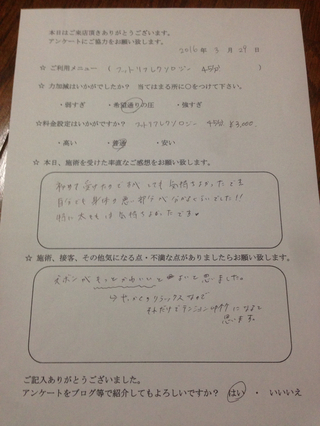 本日はご来店頂きありがとうございます。
アンケートにご協力をお願い致します。
2016年 3月29日
☆ ご利用メニュー ( フットリフレクソロジー 45分 )
☆ 力加減はいかがでしたか? 当てはまる所に〇をつけて下さい。
・弱すぎ ・希望通りの圧 ・強すぎ
☆料金設定はいかがですか? フットリフレクソロジー 45分 ¥3,000
・高い ・普通 ・安い
☆ 本日、施術を受けた率直なご感想をお願い致します。
初めて受けたのですが とても気持ちよかったです
自分でも身体の悪い部分が分からないくらいでした!!
特に 太ももは気持ちよかったです。
☆ 施術、接客、その他気になる点・不満な点がありましたらお願い致します。
ズボンがもっとかわいいと よいと思いました。
リラックス
それだけでテンション になると
思います。
ご記入ありがとうございました。
アンケートをブログ等で紹介してもよろしいですか? はい ・ いいいえ